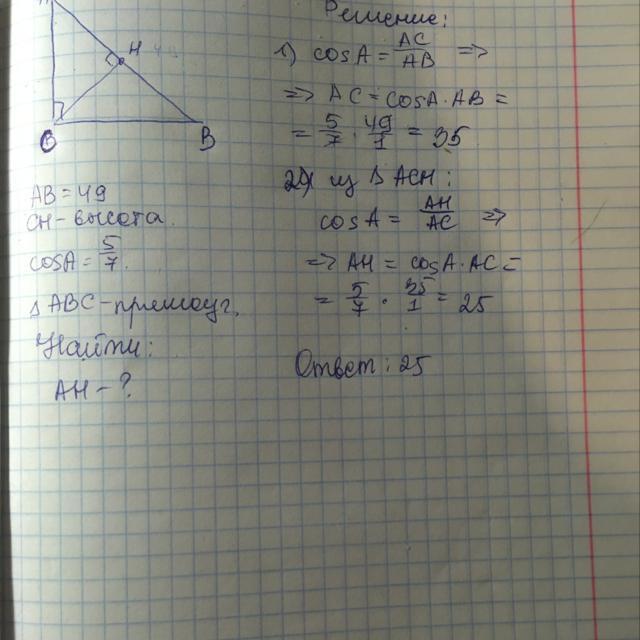 H
C
B
AB = 49
CH - высота
cosA = 5/7.
Δ ABC - прямоуг.
Найти:
AH - ?
Решение:
1) cosA = AC/AB =>
=> AC = cosA · AB =
= 5/7 · 49/1 = 35
2) из Δ ACH:
cosA = AH/AC =>
=> AH = cosA · AC =
= 5/7 · 35/1 = 25
Ответ: 25